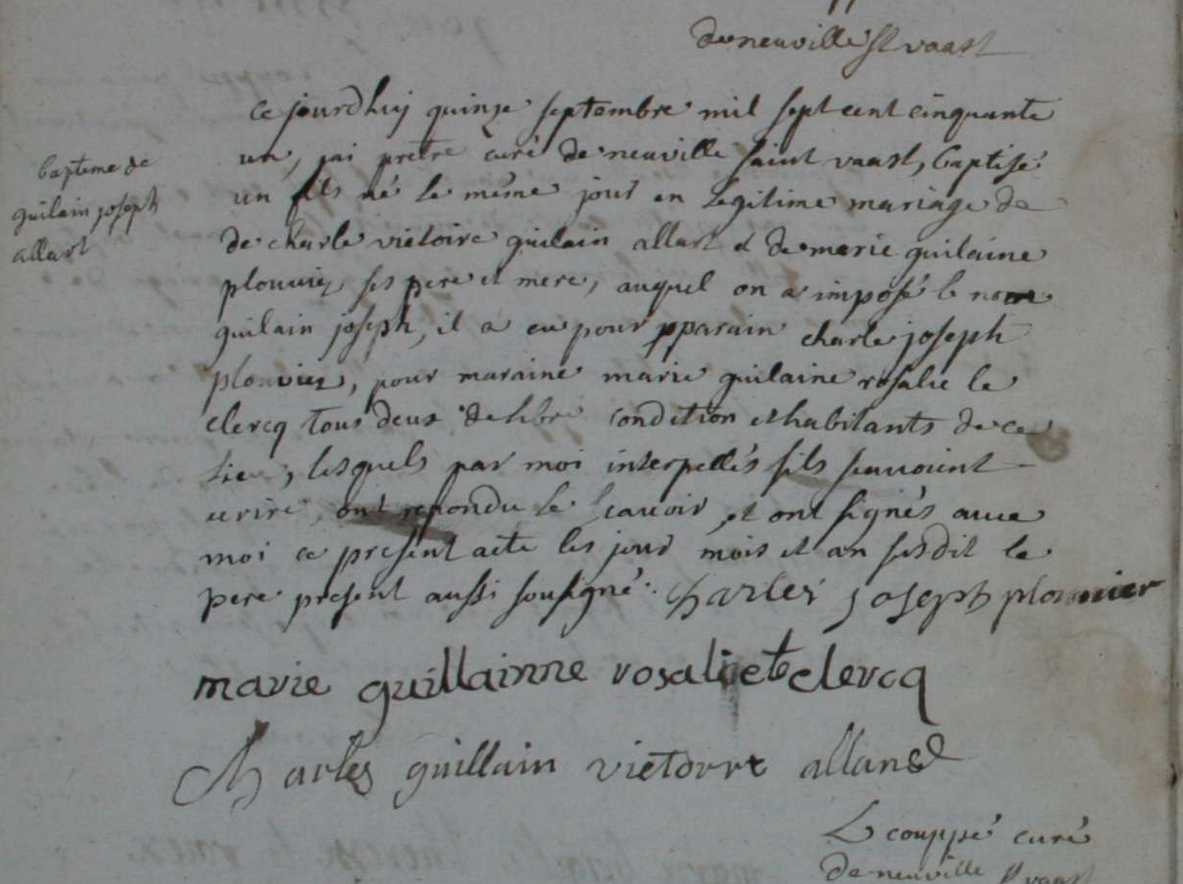 de neuville st vaast
ce jourdhuy quinze septembre mil sept cent cinquante
bapteme de
guilain joseph
allart
un, jai pretre curé de neuville saint vaast, baptisé
un fils né le même jour en légitime mariage de
de charle victoire guilain allart et de marie guilaine
plouviez ses pere et mere, auquel on a imposé le nom
guilain joseph, il a eu pour pparain charle joseph
plouviez, pour maraine marie guilaine rosalie le
clercq tous deux de libre condition et habitants de ce
lieu, lesquels par moi interpellés sils scavoient
ecrire, ont repondu le scavoir, et ont signés avec
moi ce present acte les jour mois et an susdit le
pere present aussi sousigné. Charles joseph plouvier
marie guillainne rosalie le clercq
Charles guillain victorre allard
Le couppé curé
de neuville st vaast